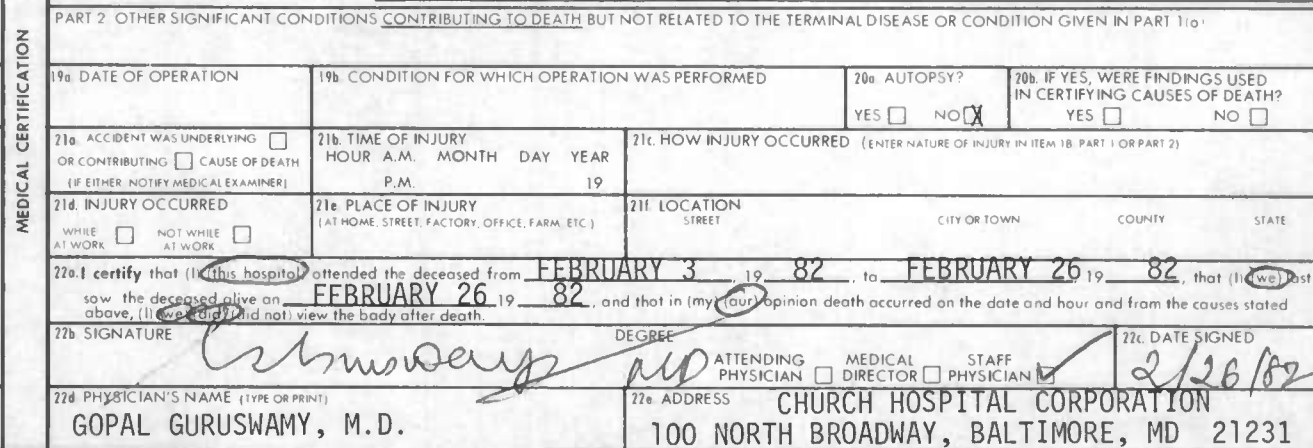 MEDICAL CERTIFICATION
PART 2 OTHER SIGNIFICANT CONDITIONS CONTRIBUTING TO DEATH BUT NOT RELATED TO THE TERMINAL DISEASE OR CONDITION GIVEN IN PART 1(a)
19a DATE OF OPERATION
19b CONDITION FOR WHICH OPERATION WAS PERFORMED
20a AUTOPSY?
YES NO X
20b. IF YES, WERE FINDINGS USED
IN CERTIFYING CAUSES OF DEATH?
YES NO
21a. ACCIDENT WAS UNDERLYING
OR CONTRIBUTING CAUSE OF DEATH
(IF EITHER NOTIFY MEDICAL EXAMINER)
21b. TIME OF INJURY
HOUR A.M. MONTH DAY YEAR
P.M. 19
21c. HOW INJURY OCCURRED (ENTER NATURE OF INJURY IN ITEM 18 PART 1 OR PART 2)
21d. INJURY OCCURRED
WHILE AT WORK NOT WHILE AT WORK
21e PLACE OF INJURY
(AT HOME, STREET, FACTORY, OFFICE, FARM, ETC)
21f LOCATION
STREET CITY OR TOWN COUNTY STATE
22a. I certify that (I) (this hospital) attended the deceased from FEBRUARY 3 19 82, to FEBRUARY 26, 19 82, that (I) (we) last
saw the deceased alive on FEBRUARY 26 19 82, and that in (my) (our) opinion death occurred on the date and hour and from the causes stated
above, (I) (we) (did) (did not) view the body after death.
22b SIGNATURE
DEGREE
MD
ATTENDING PHYSICIAN MEDICAL DIRECTOR STAFF PHYSICIAN
22c. DATE SIGNED
2/26/82
22d PHYSICIAN'S NAME (TYPE OR PRINT)
GOPAL GURUSWAMY, M.D.
22e ADDRESS
CHURCH HOSPITAL CORPORATION
100 NORTH BROADWAY, BALTIMORE, MD 21231